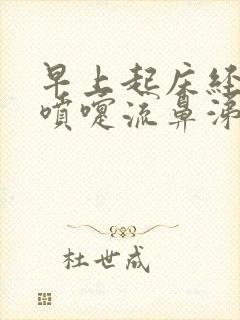 早上起床经
喷嚏流鼻涕
杜世成